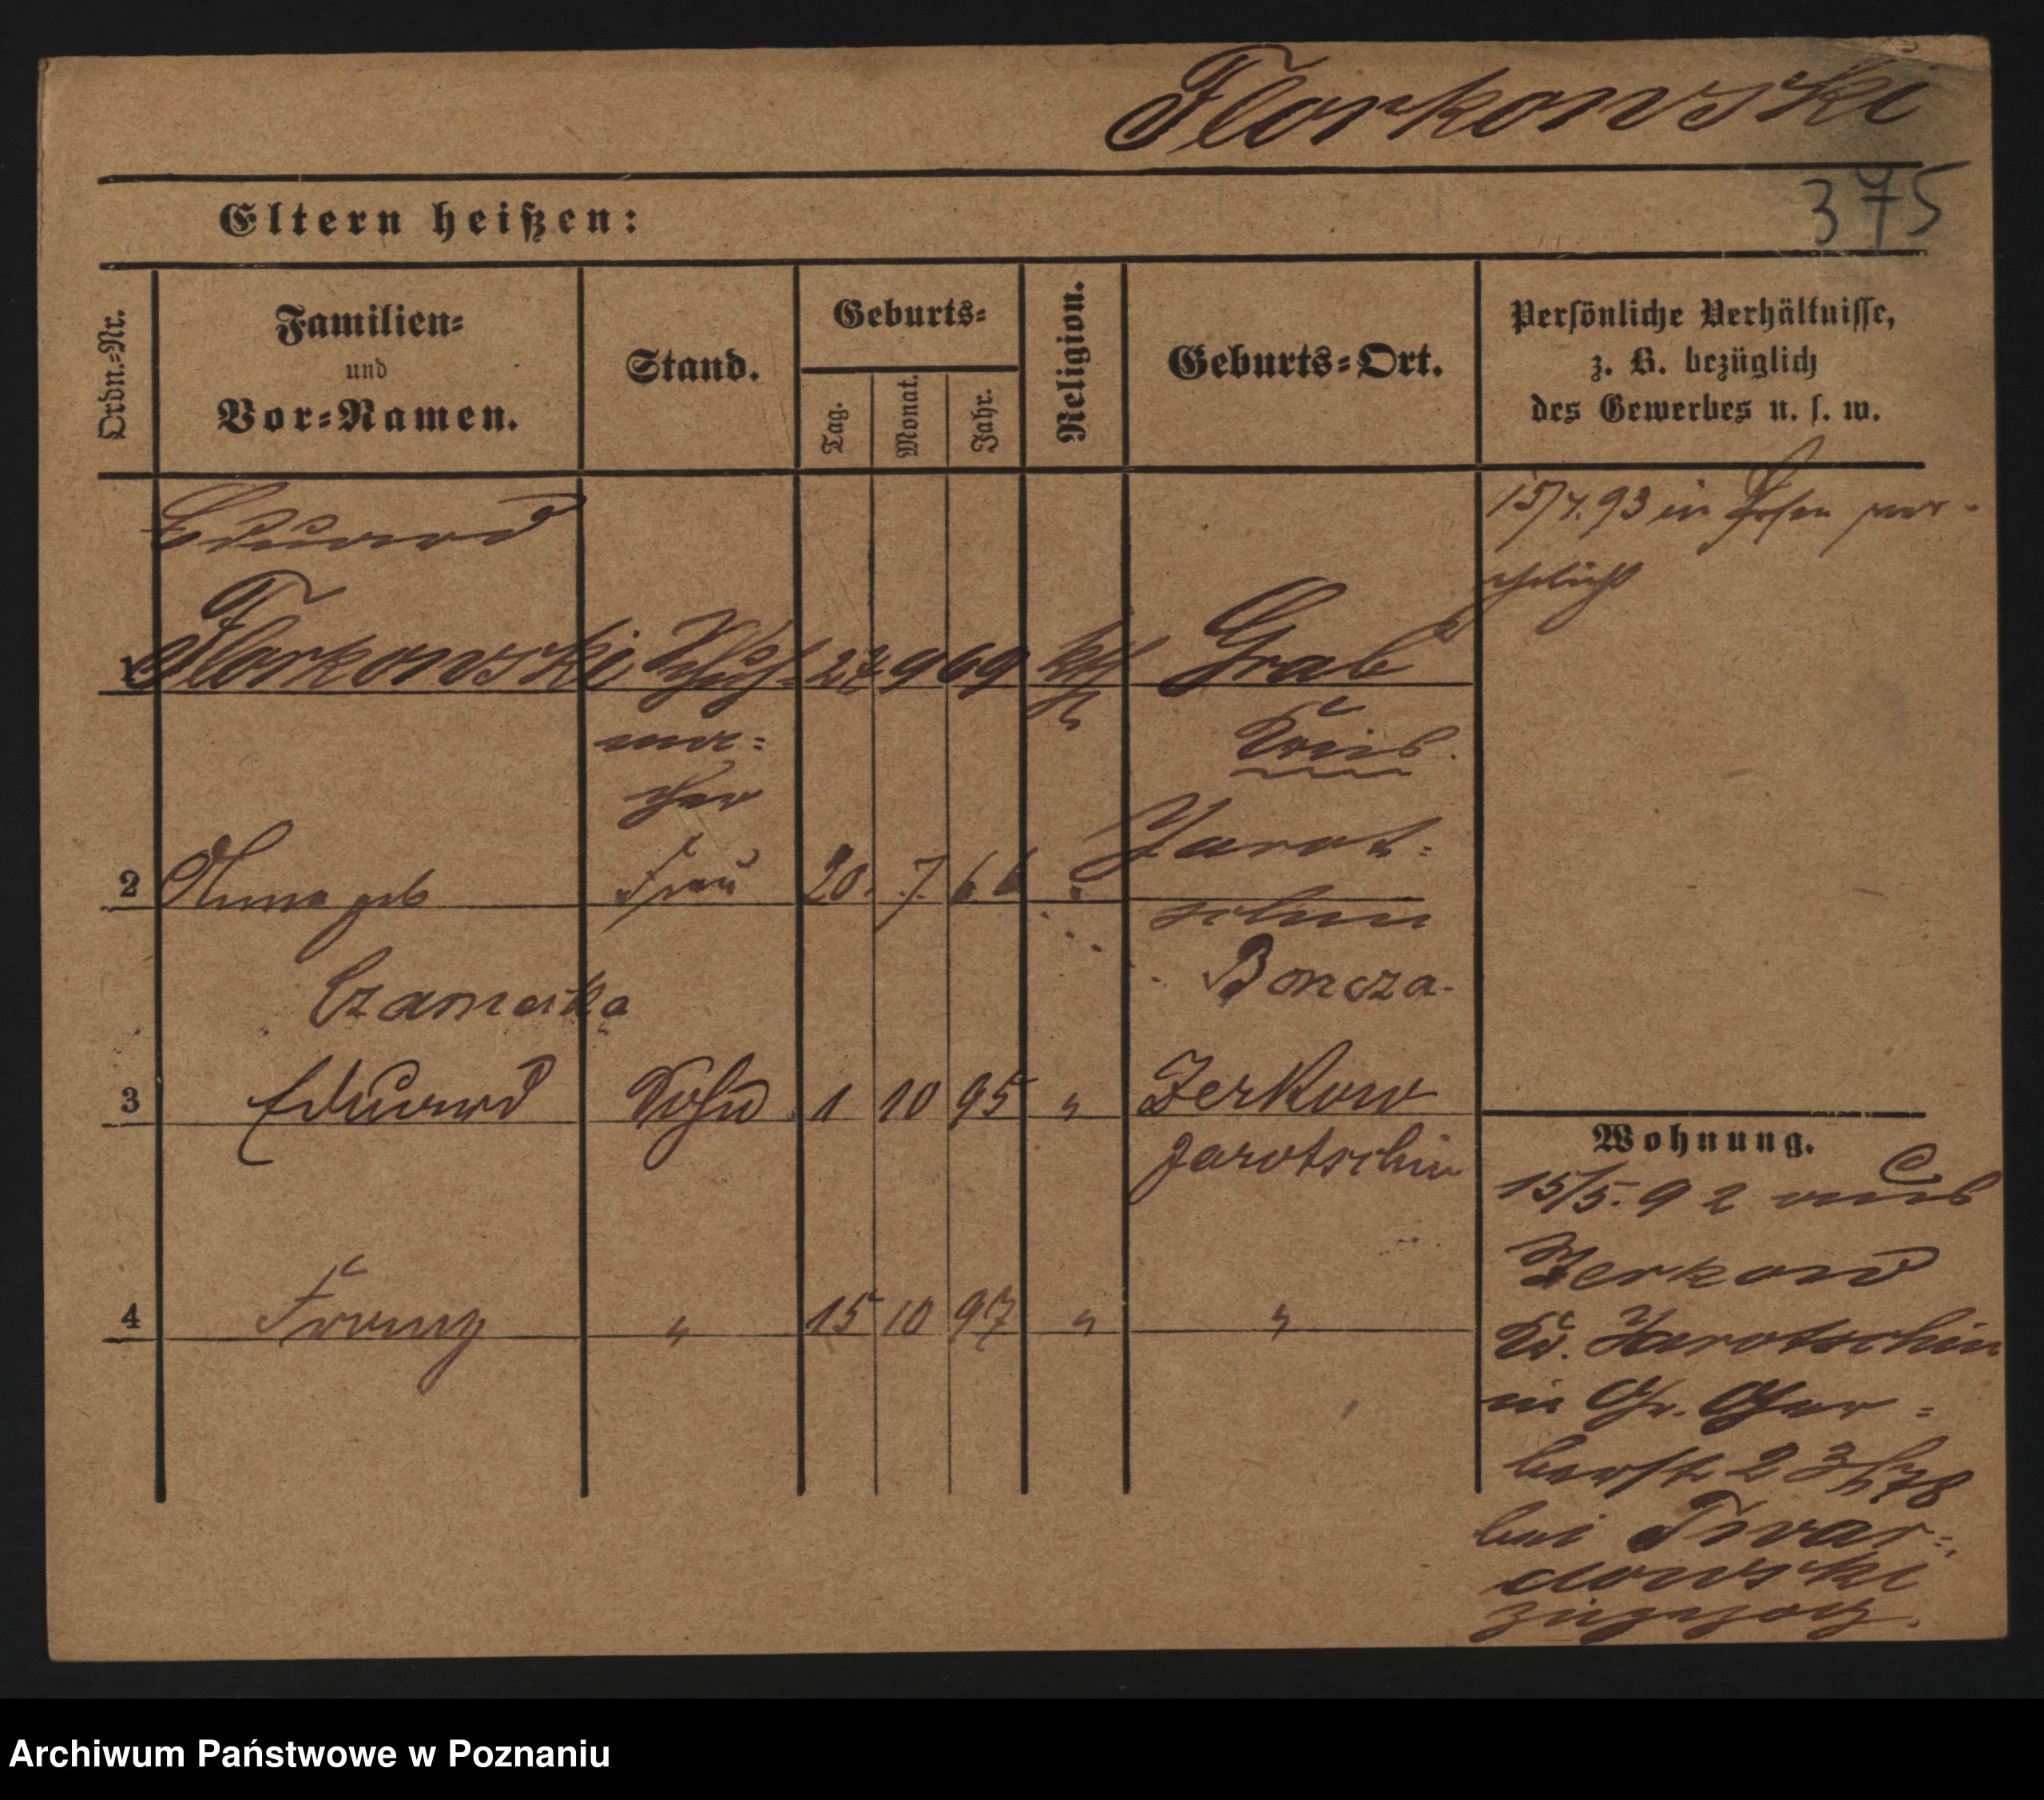 Florkowski
375
Eltern heißen:
Ordn.=Nr.
Familien=
und
Vor=Namen.
Stand.
Geburts=
Tag.
Monat.
Jahr.
Religion.
Geburts=Ort.
Persönliche Verhältnisse,
z. B. bezüglich
des Gewerbes u. s. w.
Eduard
15/7. 93 in Posen ver-
ehelicht
1 Florkowski Schuh- 27 9 69 kth Grab
ma=
cher
Kreis
Jarot=
schin
2 Anna geb Frau 20. 7. 66
Czarnecka
Boncza
3 Eduard Sohn 1 10 95 " Zerkow
Jarotschin
4 Franz " 15 10 97 " "
Wohnung.
15/5. 92 aus
Zerkow
Kr. Jarotschin
in Gr. Ger=
berstr 23
bei Twar=
dowski
zugezog.
Archiwum Państwowe w Poznaniu